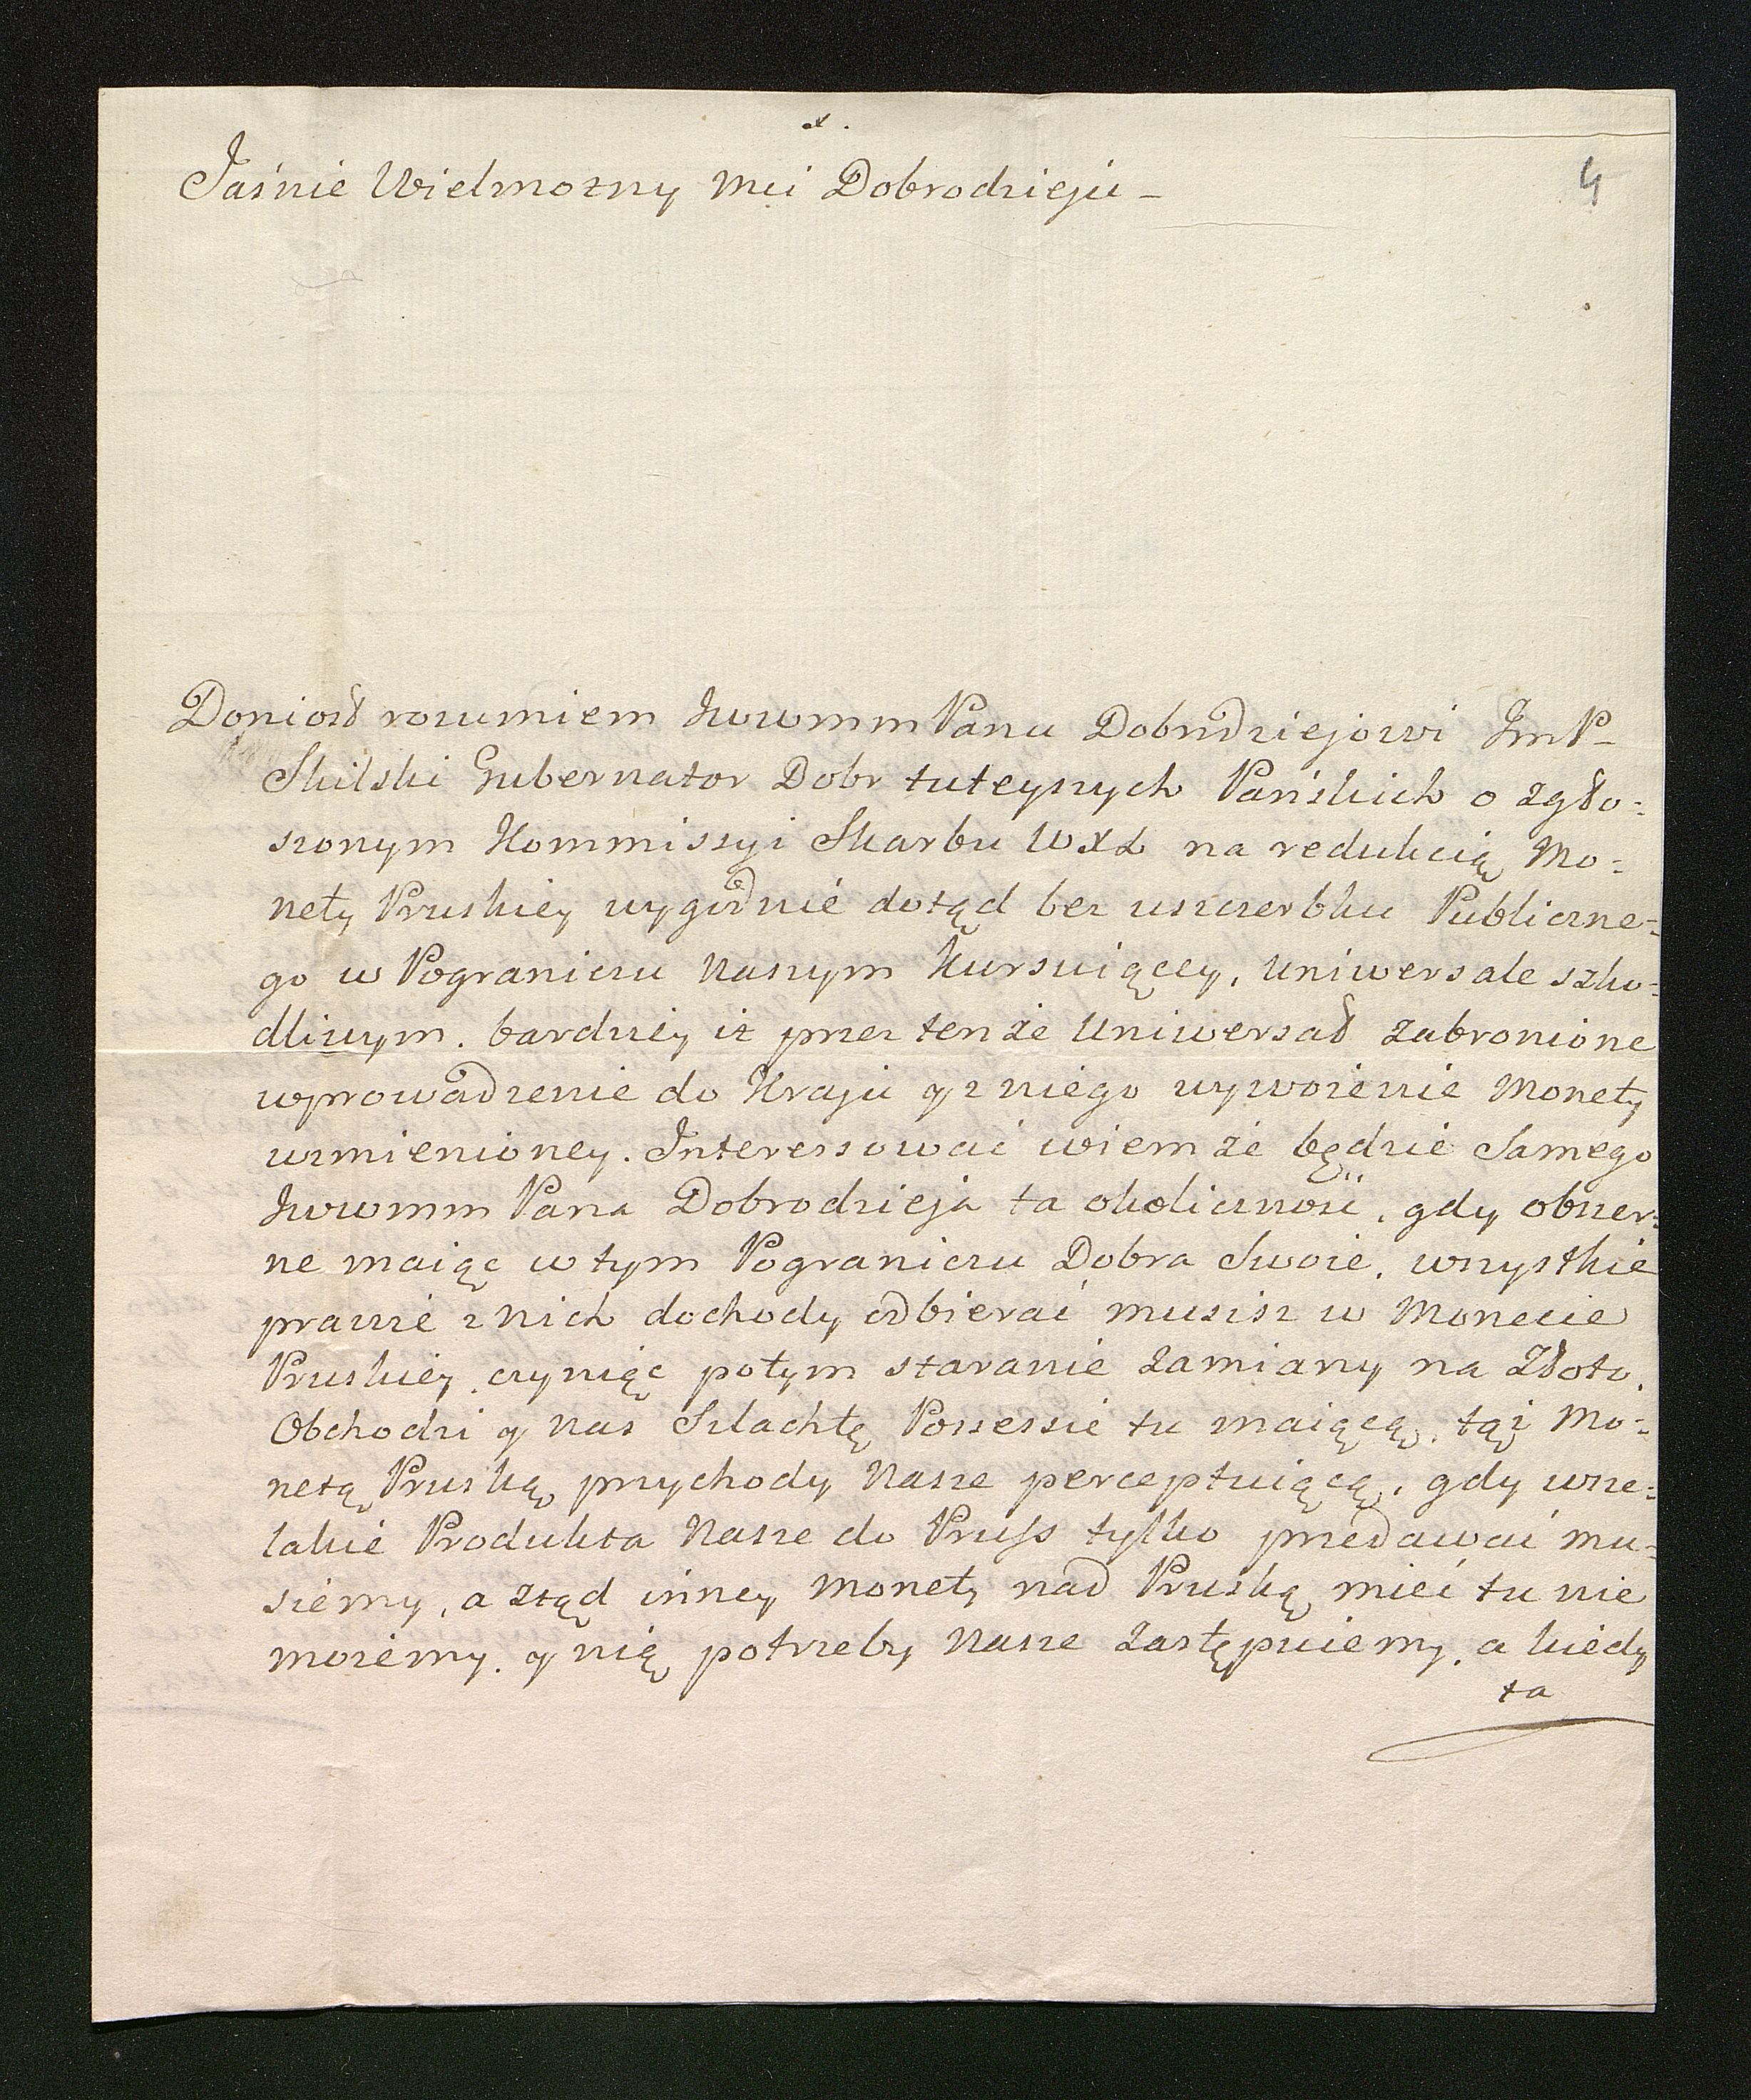 4
Jaśnie Wielmozny Mci Dobrodzieju -
Doniosł rozumiem Jwwmm Panu Dobrodziejowi JmP-
Skilski Gubernator Dobr tuteyszych Pańskich o zgło:
szonym Kommissyi Skarbu WXL na redukcią Mo:
nety Pruskiey wygodnie dotąd bez uszczerbku Publiczne:
go w Pograniczu Naszym Kursuiącey, Uniwersale szko:
dliwym. bardziey iż przez tenże Uniwersał zabronione
wprowadzenie do Kraju y z niego wywożenie Monety
wzmienioney. Interessować wiem że będzie Samego
Jwwmm Pana Dobrodzieja ta okoliczność, gdy obszer:
ne maiąc w tym Pograniczu Dobra Swoie, wszystkie
prawie z nich dochody odbierać musisz w Monecie
Pruskiey czyniąc potym staranie zamiany na Złoto.
Obchodzi y nas Szlachtę Possessie tu maiącą, tąż Mo:
netą Pruską przychody Nasze perceptuiącą, gdy wsze:
lakie Produkta Nasze do Pruss tylko przedawać mu:
siemy, a ztąd inney Monety nad Pruską mieć tu nie
możemy. y nią potrzeby Nasze zastępuiemy, a kiedy
ta